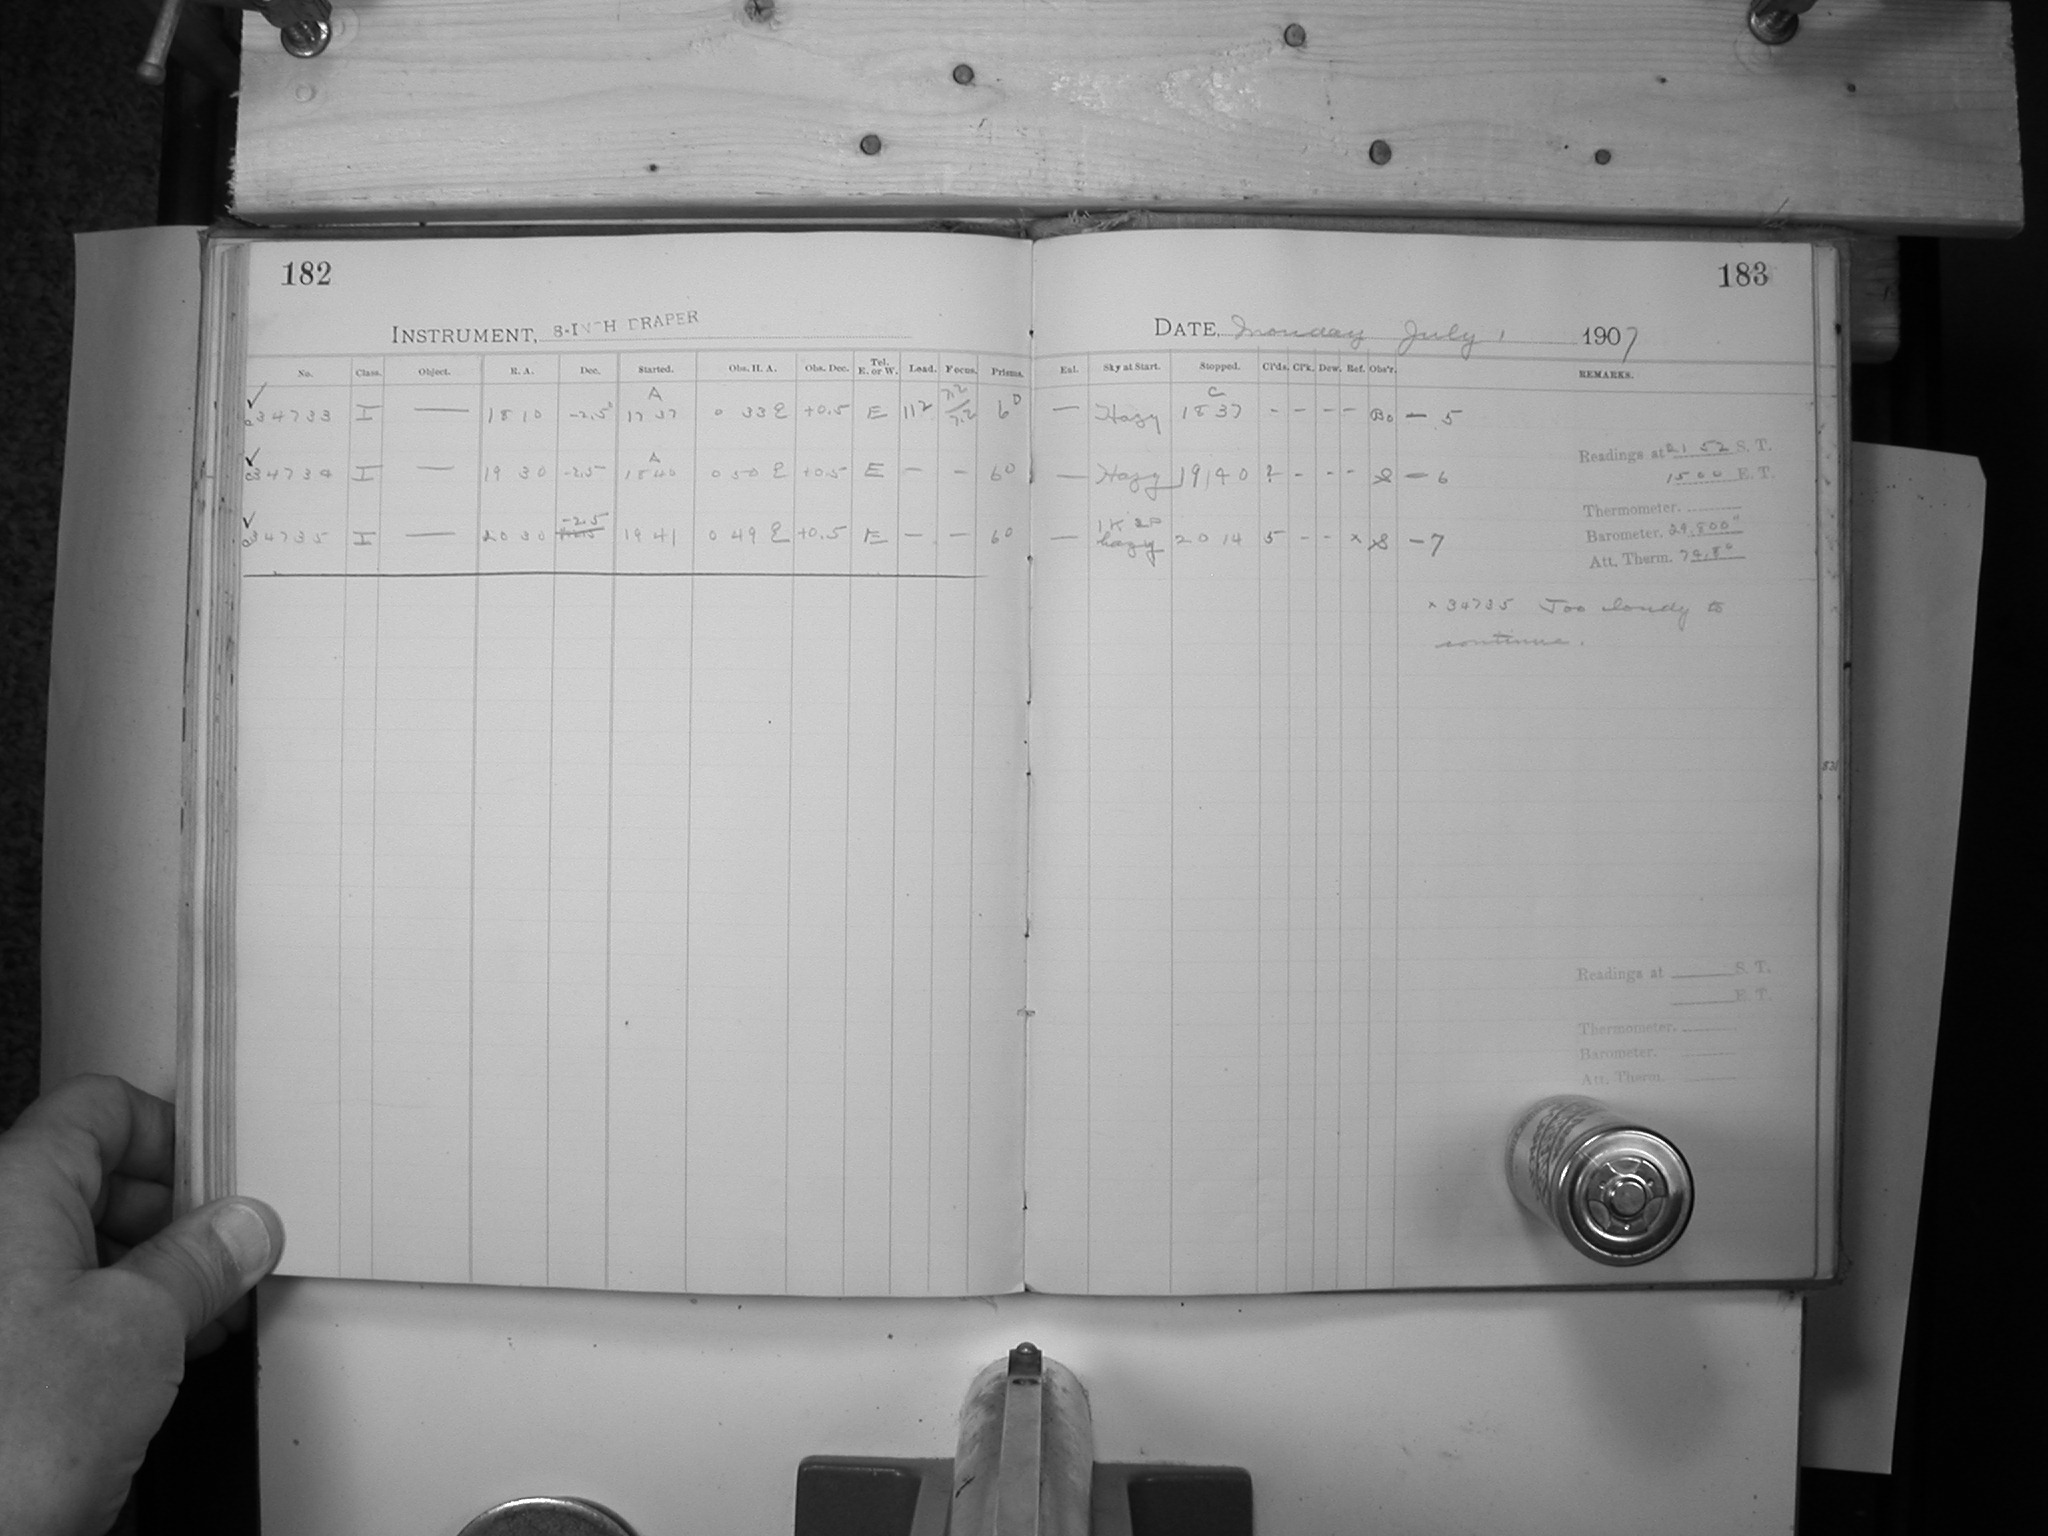 182
INSTRUMENT, 8-INCH DRAPER
No. Class. Object. R. A. Dec. Started. Obs. H. A. Obs. Dec. Tel. E. or W. Load. Focus. Prisms.
✓ 34733 I — 18 10 -2.5 A 17 37 0 33 E +0.5 E 112 7.2/7.2 6D
✓ 34734 I — 19 30 -2.5 A 18 40 0 50 E +0.5 E — — 6D
✓ 34735 I — 20 30 -2.5 19 41 0 49 E +0.5 E — — 6D
183
DATE, Monday July 1 1907
Sky at Start. Stopped. Cl'ds. Cl'k. Dew. Ref. Obs'r. REMARKS.
— Hazy C 18 37 - - - - Bo — 5
— Hazy 19 40 ? - - - S — 6
— hazy 20 14 5 - - × S — 7
Readings at 21 52 S. T.
1500 E. T.
Thermometer.
Barometer. 29.800"
Att. Therm. 74.8°
× 34735 Too cloudy to
continue.
Readings at S. T.
E. T.
Thermometer.
Barometer.
Att. Therm.